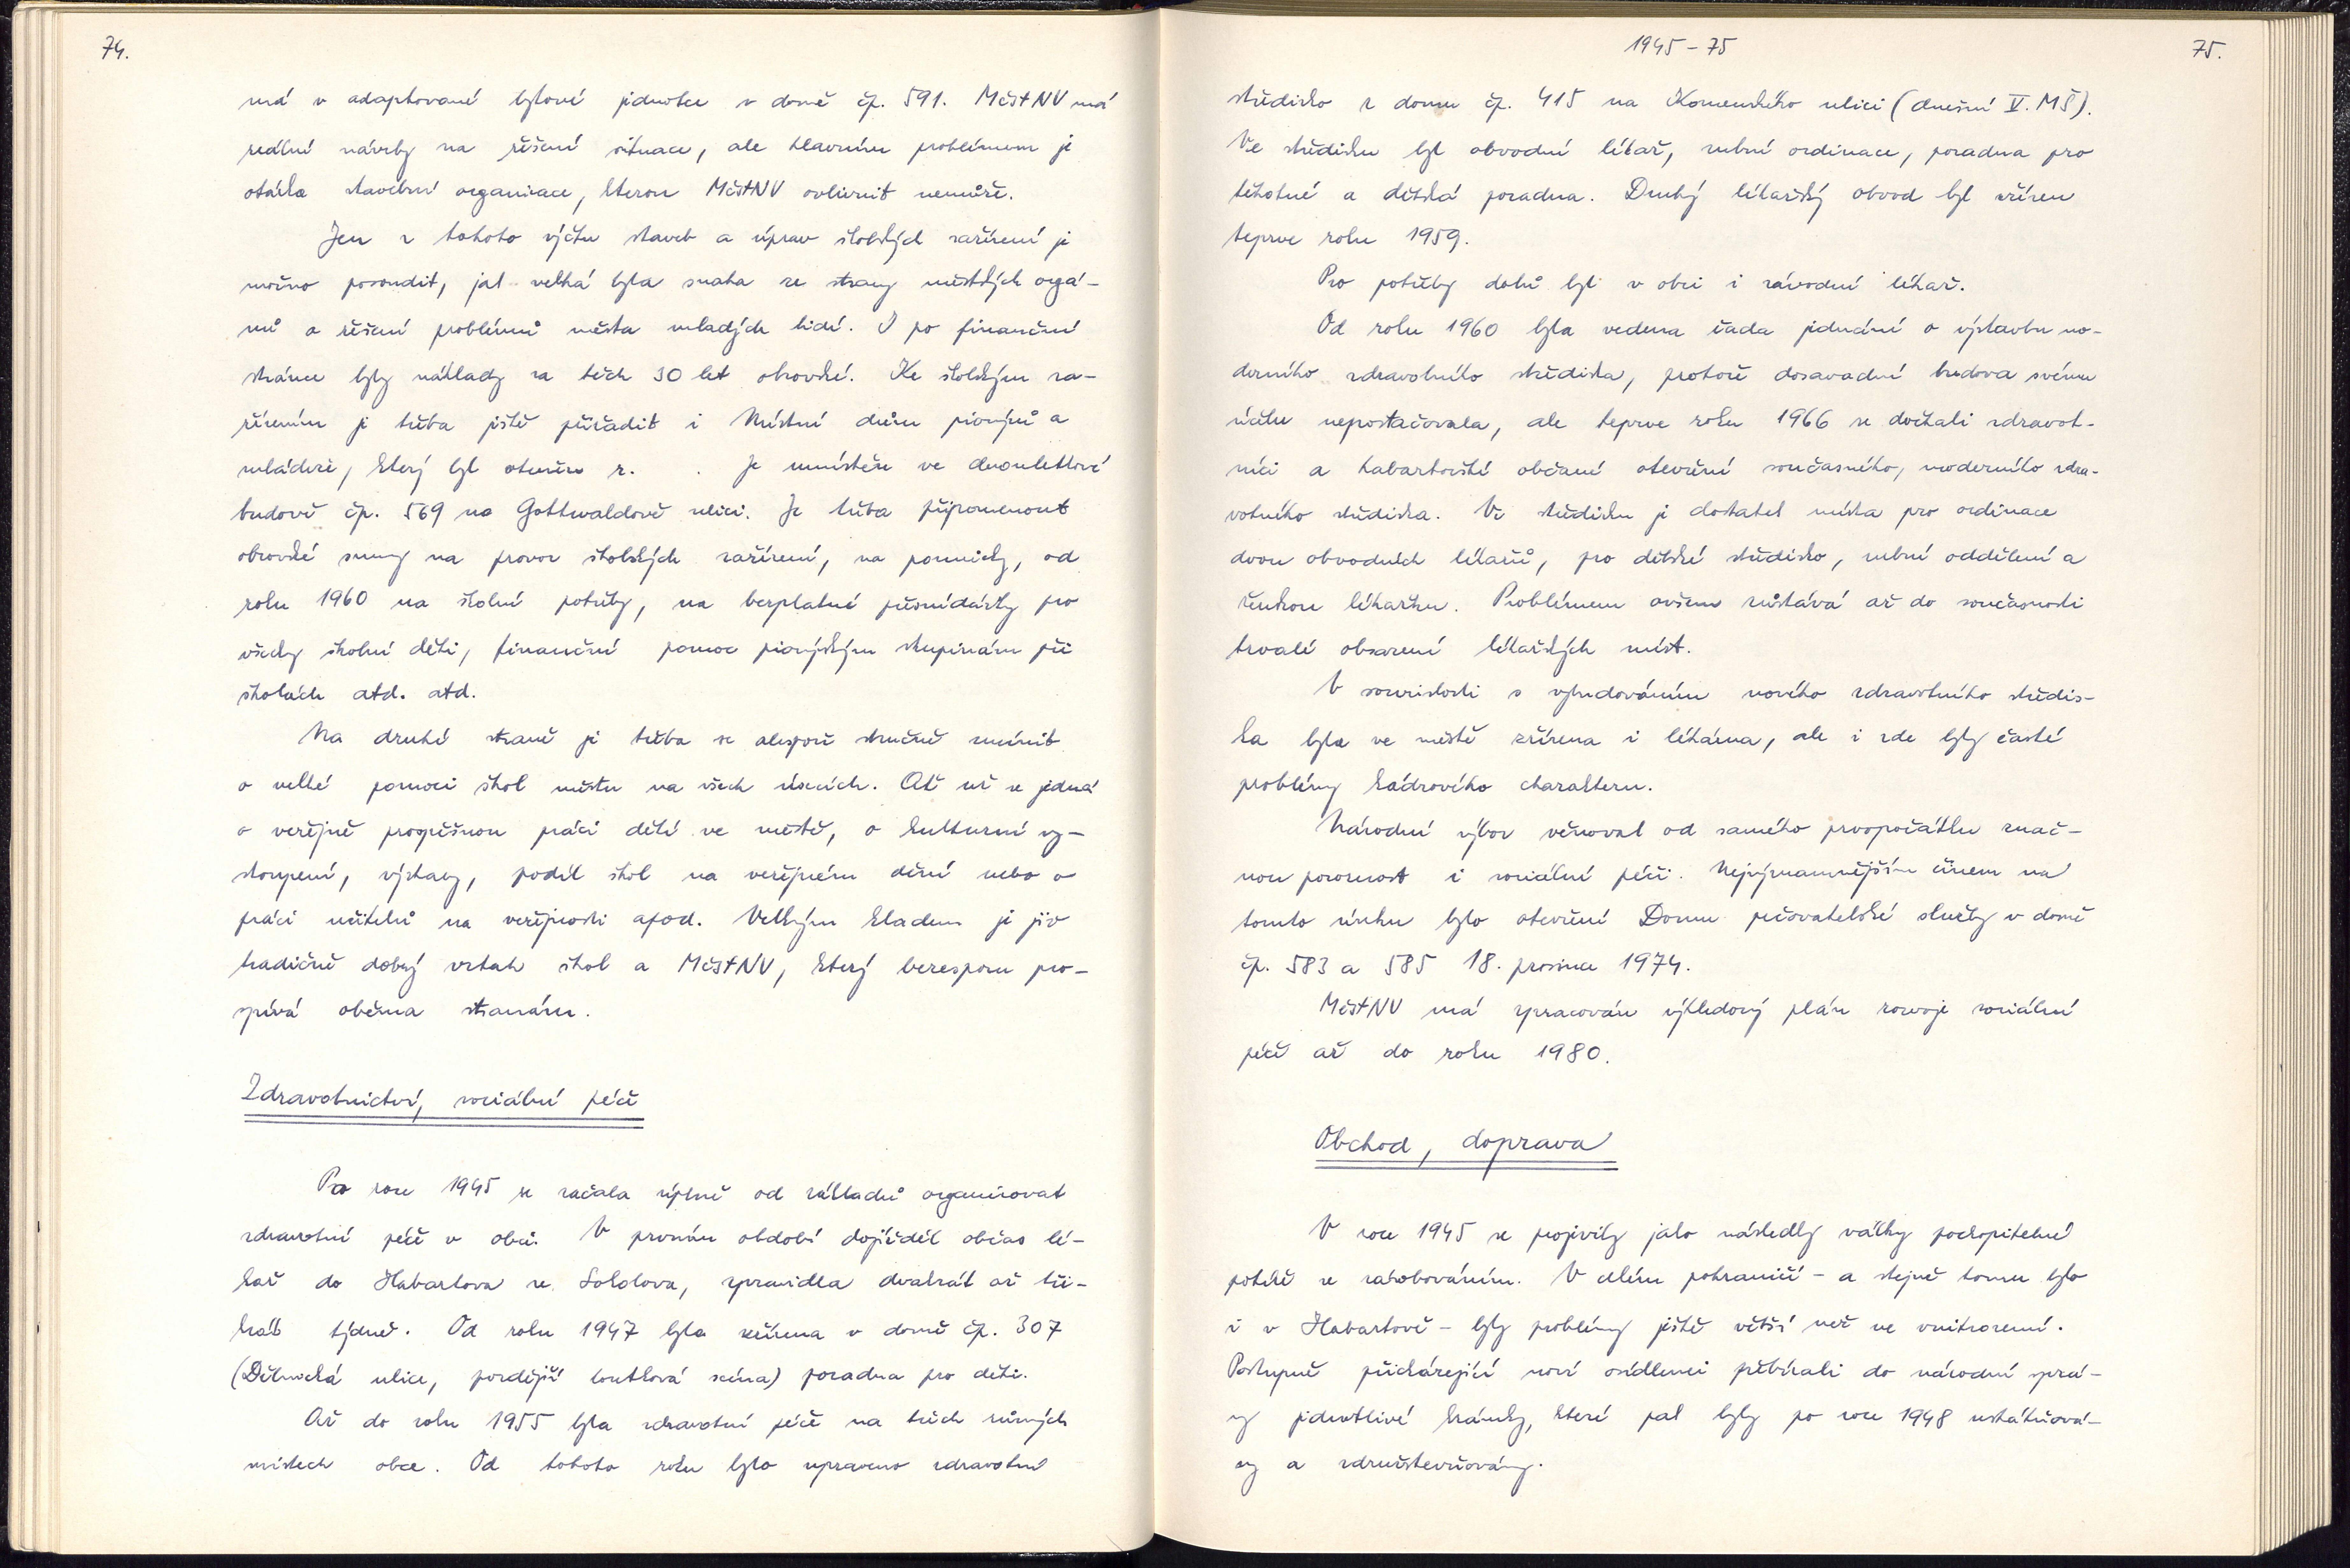 74.
má v adaptované bytové jednotce v domě čp. 591. MěstNV má
reálné návrhy na řešení situace, ale hlavním problémem je
otázka stavební organizace, kterou MěstNV ovlivnit nemůže.
Jen z tohoto výčtu staveb a úprav školských zařízení je
možno posoudit, jak velká byla snaha ze strany městských orgá-
nů o řešení problémů města mladých lidí. I po finanční
stránce byly náklady za těch 30 let obrovské. Ke školským za-
řízením je třeba jistě přiřadit i Místní dům pionýrů a
mládeže, který byl otevřen r. . Je umístěn ve dvouletkové
budově čp. 569 na Gottwaldově ulici. Je třeba připomenout
obrovské sumy na provoz školských zařízení, na pomůcky, od
roku 1960 na školní potřeby, na bezplatné přesnídávky pro
všechny školní děti, finanční pomoc pionýrským skupinám při
školách atd. atd.
Na druhé straně je třeba se alespoň stručně zmínit
o velké pomoci škol městu na všech úsecích. Ať už se jedná
o veřejně prospěšnou práci dětí ve městě, o kulturní vy-
stoupení, výstavy, podíl škol na veřejném dění nebo o
práci učitelů na veřejnosti apod. Velkým kladem je již
tradičně dobrý vztah škol a MěstNV, který bezesporu pro-
spívá oběma stranám.
Zdravotnictví, sociální péče
Po roce 1945 se začala úplně od základů organizovat
zdravotní péče v obci. V prvním období dojížděl občas lé-
kař do Habartova ze Sokolova, zpravidla dvakrát až tři-
krát týdně. Od roku 1947 byla zřízena v domě čp. 307
(Dělnická ulice, pozdější loutková scéna) poradna pro děti.
Až do roku 1955 byla zdravotní péče na třech různých
místech obce. Od tohoto roku bylo upraveno zdravotní
1945-75
75.
středisko z domu čp. 415 na Komenského ulici (dnešní V. MŠ).
Ve středisku byl obvodní lékař, zubní ordinace, poradna pro
těhotné a dětská poradna. Druhý lékařský obvod byl zřízen
teprve roku 1959.
Pro potřeby dolů byl v obci i závodní lékař.
Od roku 1960 byla vedena řada jednání o výstavbu mo-
derního zdravotního střediska, protože dosavadní budova svému
účelu nepostačovala, ale teprve roku 1966 se dočkali zdravot-
níci a habartovští občané otevření současného, moderního zdra-
votního střediska. Ve středisku je dostatek místa pro ordinace
dvou obvodních lékařů, pro dětské středisko, zubní oddělení a
ženskou lékařku. Problémem ovšem zůstává až do současnosti
trvalé obsazení lékařských míst.
V souvislosti s vybudováním nového zdravotního středis-
ka byla ve městě zřízena i lékárna, ale i zde byly časté
problémy kádrového charakteru.
Národní výbor věnoval od samého prvopočátku znač-
nou pozornost i sociální péči. Nejvýznamnějším činem na
tomto úseku bylo otevření Domu pečovatelské služby v domě
čp. 583 a 585 18. prosince 1974.
MěstNV má zpracován výhledový plán rozvoje sociální
péče až do roku 1980.
Obchod, doprava
V roce 1945 se projevily jako následky války pochopitelné
potíže se zásobováním. V celém pohraničí - a stejně tomu bylo
i v Habartově - byly problémy jistě větší než ve vnitrozemí.
Postupně přicházející noví osídlenci přebírali do národní sprá-
vy jednotlivé krámky, které pak byly po roce 1948 zestátňová-
ny a združstevňovány.